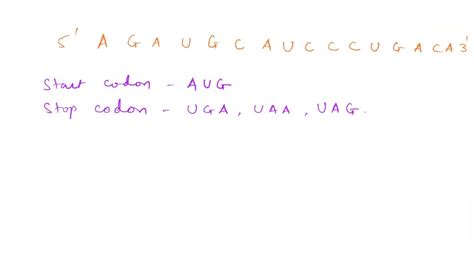 5' A G A U G C A U C C C U G A C A 3'
Start codon - AUG
Stop codon - UGA, UAA, UAG.